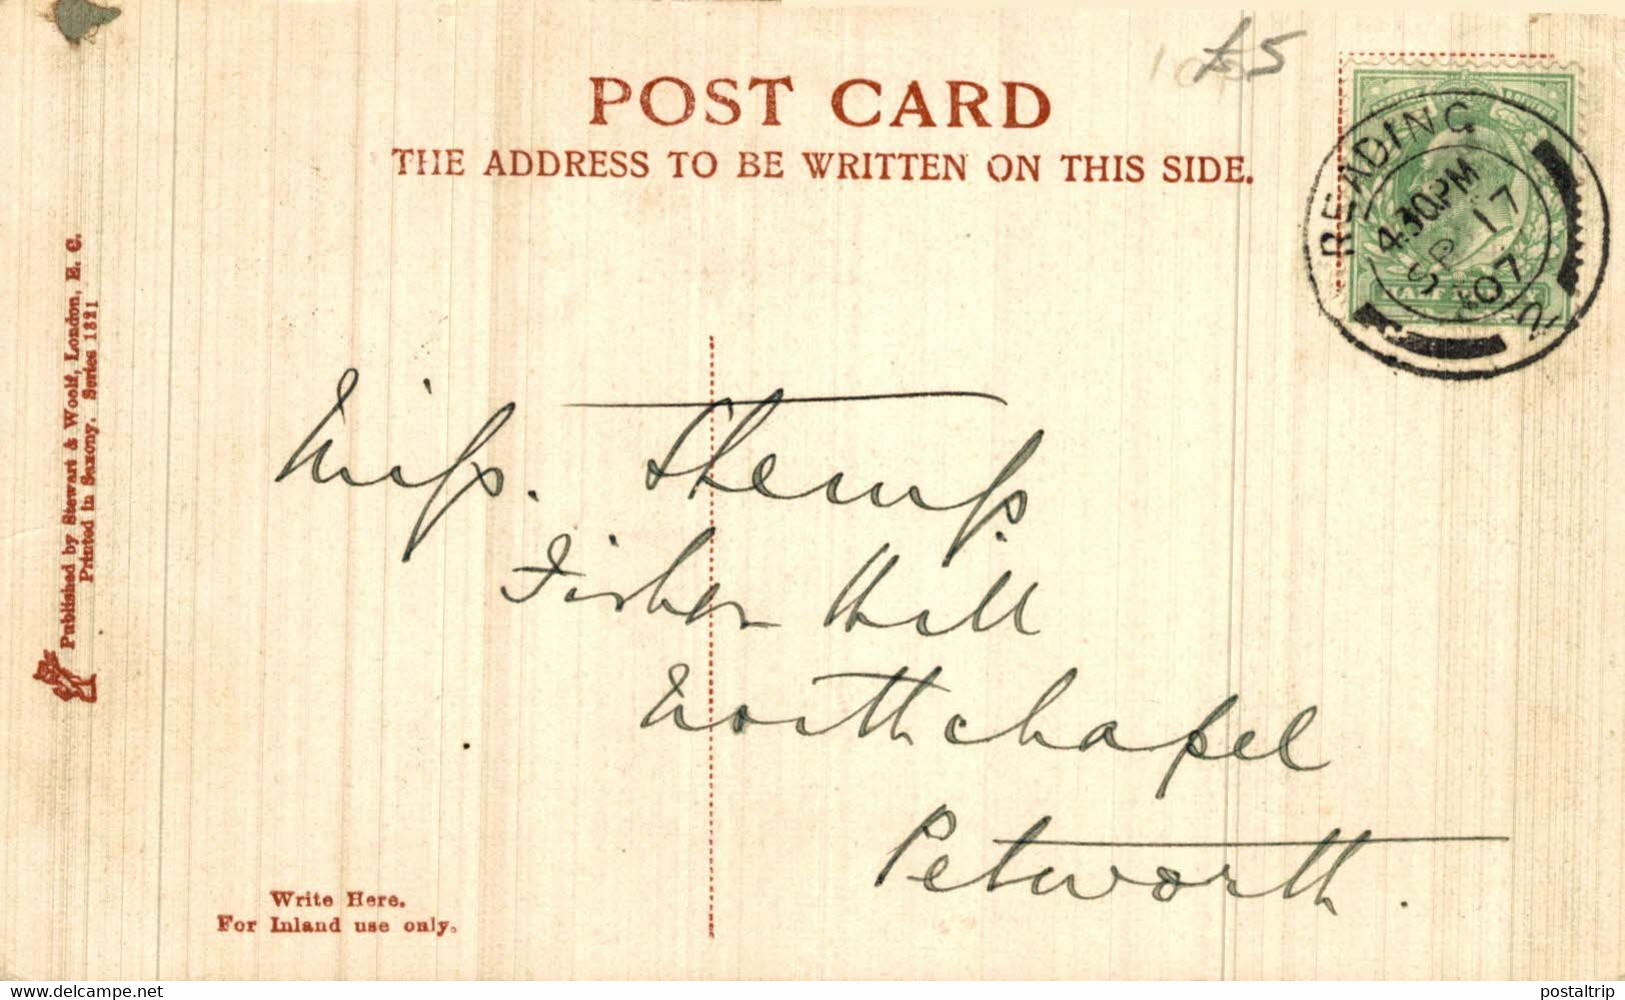 £5
POST CARD
THE ADDRESS TO BE WRITTEN ON THIS SIDE.
READING
4.30PM
SP 17
07
2
HALF PENNY
Published by Stewart & Woolf, London, E. C.
Printed in Saxony. Series 1321
Miss.
Fisher Hill
Northchapel
Petworth.
Write Here.
For Inland use only.
www.delcampe.net
postaltrip